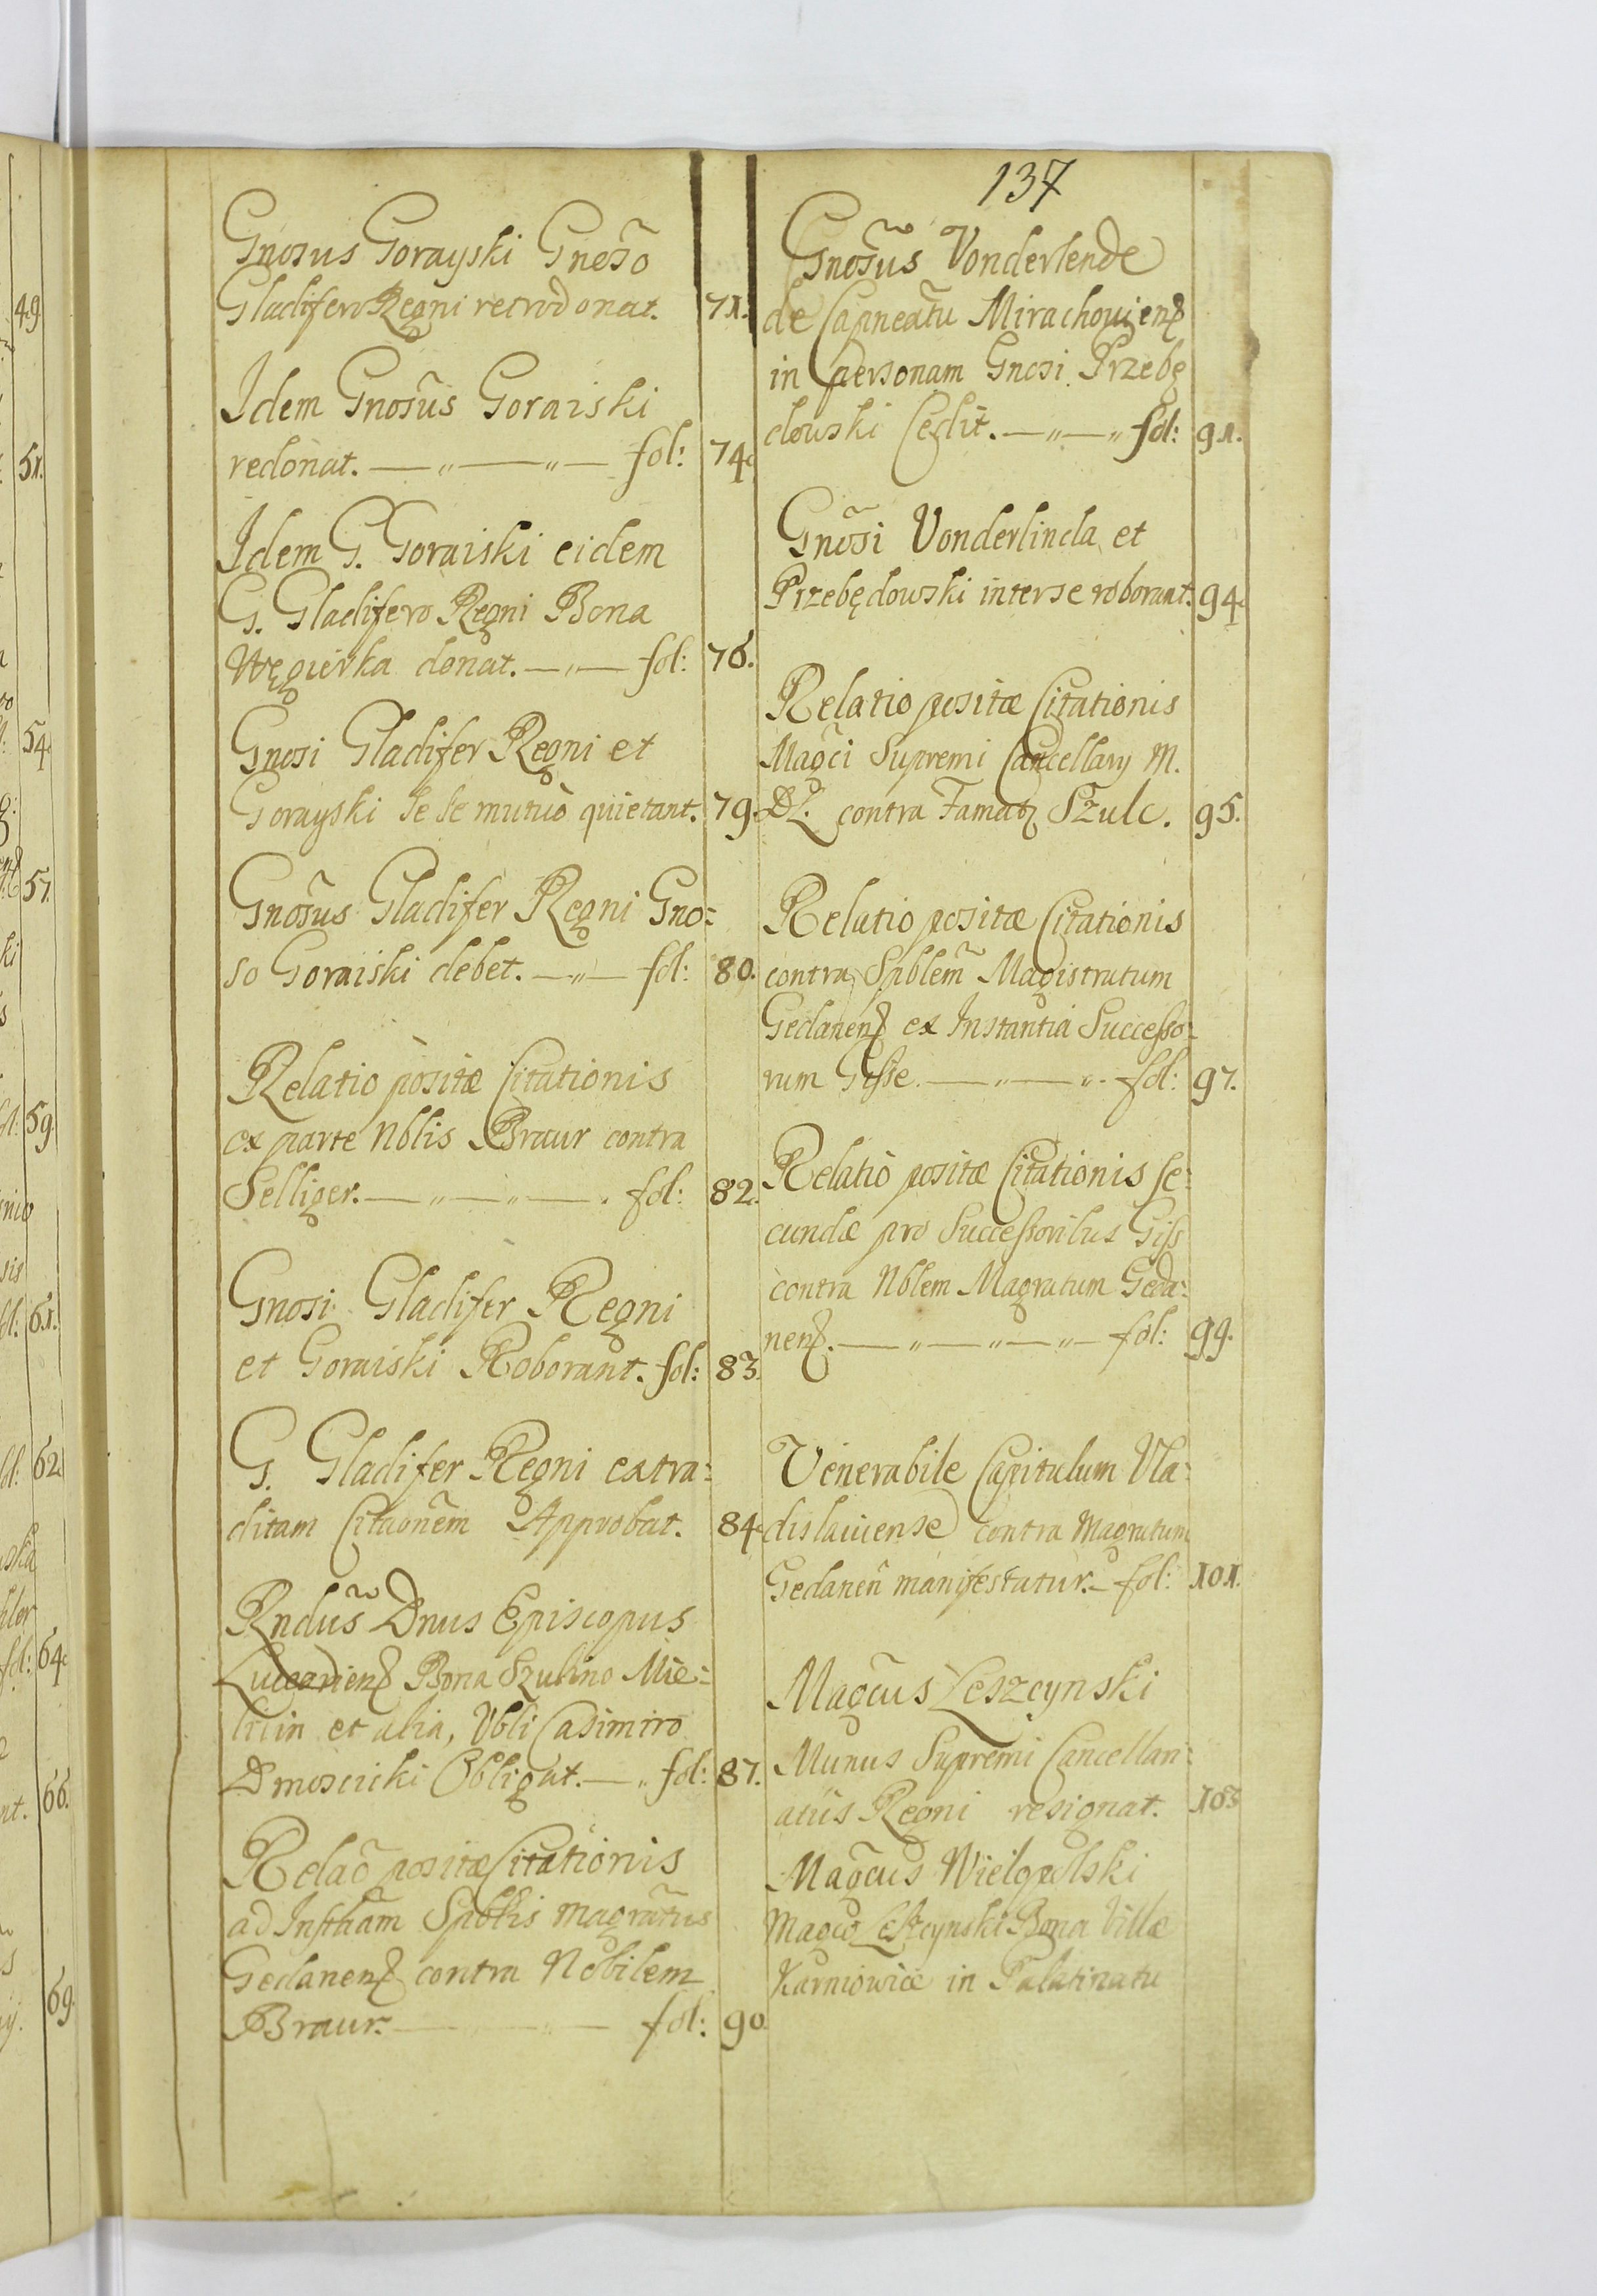 137
Gnosus Gorayski Gnõso
Gladifero Regni retrodonat. 71.
Idem Gnosũs Goraiski
redonat. — „ — „ — fol: 74.
Idem G. Goraiski eidem
G. Gladifero Regni Bona
Węgierka donat. — „ — fol: 76.
Gnosi Gladifer Regni et
Gorayski se se mutuò quietant. 79.
Gnosũs Gladifer Regni Gno:
so Goraiski debet. — „ — fol: 80.
Relatio positæ Citationis
ex parte Nblis Braur contra
Selliger. — „ — „ — . fol: 82.
Gnosi Gladifer Regni
et Goraiski Roborant. fol: 83.
G. Gladifer Regni extra:
ditam Citaonẽm Approbat. 84.
Rndũs Dnus Episcopus
Bona Szubino Mie:
et alia, Nbli Casimiro
Dmoscicki Obligat. — „ fol: 87.
Relaõ positæ Citationis
ad Insthãm Spblis magrãtus
Gedanenß contra Nobilem
Braur. — „ — fol: 90.
Gnosũs Vonderlende
de Capneatũ Mirachowienß
in personam Gnosi Przebę
dowski Cedit. — „ — „ fol: 91.
Gnõsi Vonderlinda et
Przebędowski inter se roborant. 94.
Relatio positæ Citationis
Magci Supremi Cancellarij M.
D L. contra Famatq Szulc. 95.
Relatio positæ Citationis
contra Spblem̃ Magistratum
Gedanenß ex Instantia Successo:
rum Gisse. — „ — „ . fol: 97.
Relatio positæ Citationis se:
cundæ pro Successoribus Giss
contra Nblem Magratum Geda:
nenß. — „ — „ — „ — fol: 99.
Venerabile Capitulum Vla:
dislauiense contra Magratum
Gedanen̄ manifestatur. — fol: 101.
Magcũs Leszcynski
Munus Supremi Cancellari:
atûs Regni resignat. 103
Magcũs Wielopolski
Magco Leszcynski Bona Villæ
Karniowice in Palatinatu
49.
51.
54.
57.
59.
61.
62.
64.
66.
69.